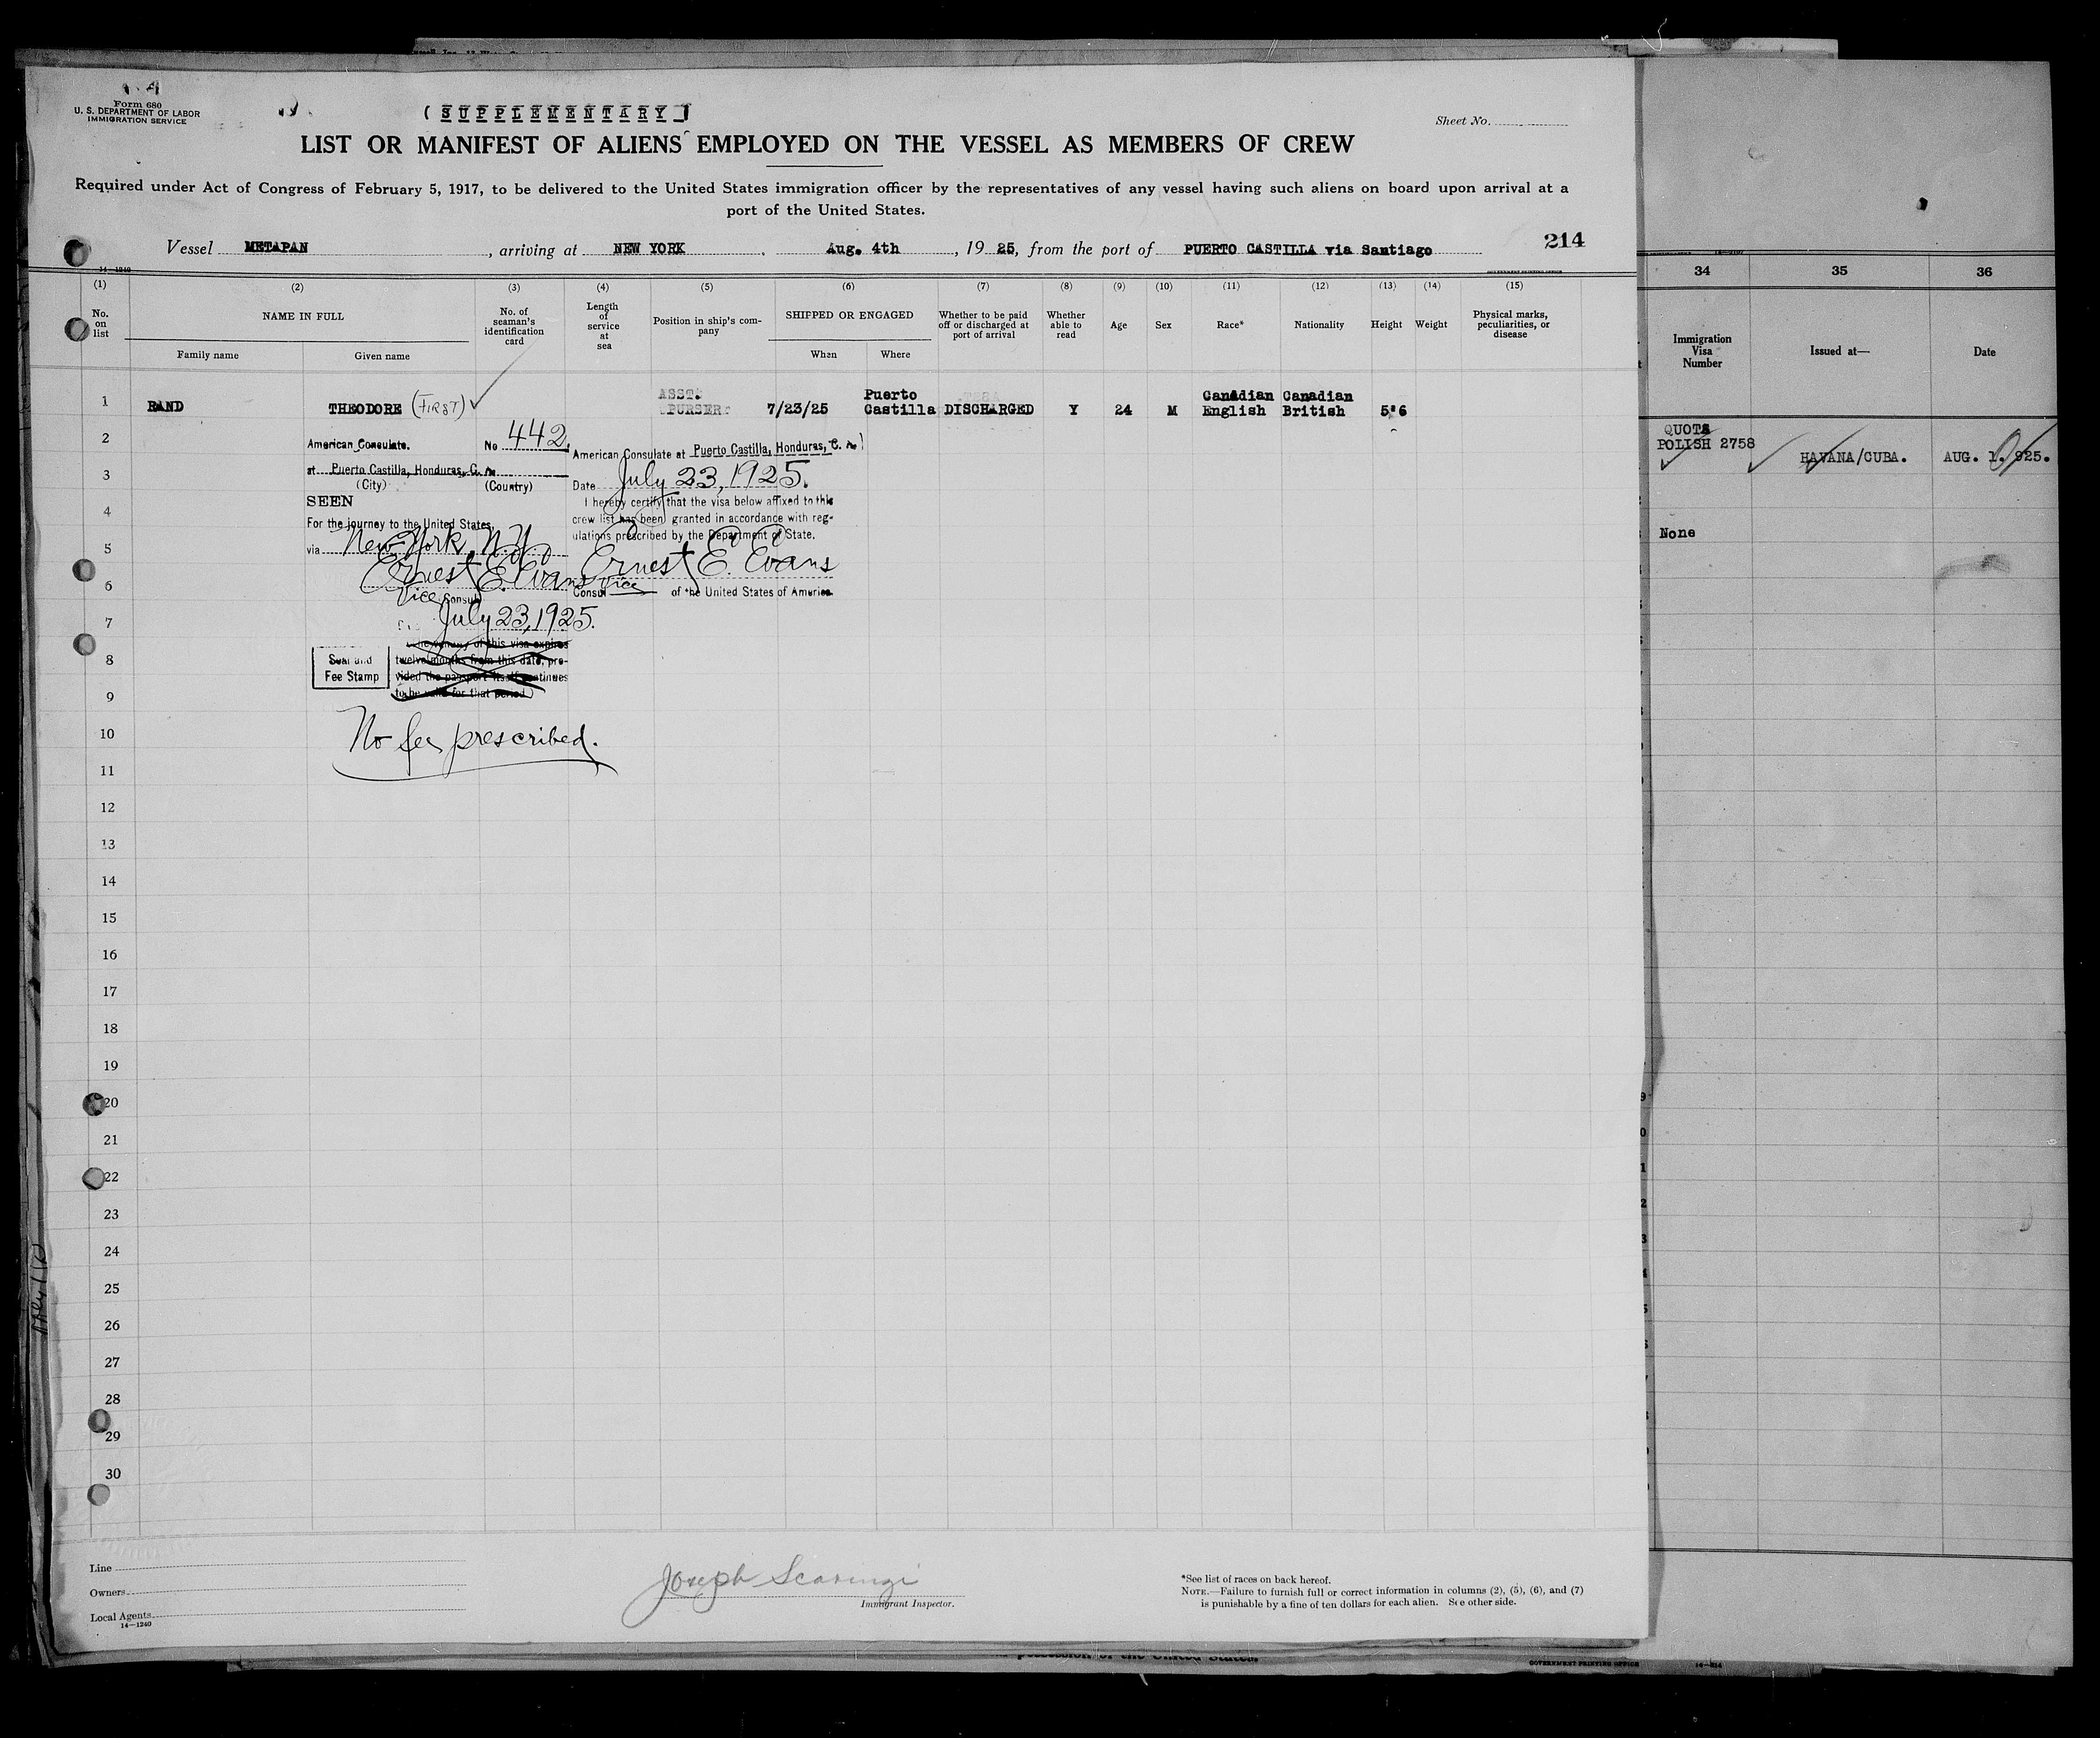 Form 680
U. S. DEPARTMENT OF LABOR
IMMIGRATION SERVICE
( SUPPLEMENTARY )
Sheet No.
LIST OR MANIFEST OF ALIENS EMPLOYED ON THE VESSEL AS MEMBERS OF CREW
Required under Act of Congress of February 5, 1917, to be delivered to the United States immigration officer by the representatives of any vessel having such aliens on board upon arrival at a
port of the United States.
Vessel METAPAN, arriving at NEW YORK, Aug. 4th, 1925, from the port of PUERTO CASTILLA via Santiago
214
14—1240
GOVERNMENT PRINTING OFFICE
(1) (2) (3) (4) (5) (6) (7) (8) (9) (10) (11) (12) (13) (14) (15)
No. on list
NAME IN FULL
Family name
Given name
No. of seaman's identification card
Length of service at sea
Position in ship's company
SHIPPED OR ENGAGED
When
Where
Whether to be paid off or discharged at port of arrival
Whether able to read
Age
Sex
Race*
Nationality
Height
Weight
Physical marks, peculiarities, or disease
1 RAND THEODORE (FIRST) ASST. PURSER 7/23/25 Puerto Castilla DISCHARGED Y 24 M Canadian English Canadian British 5'6
2
3
4
5
6
7
8
9
10
11
12
13
14
15
16
17
18
19
20
21
22
23
24
25
26
27
28
29
30
American Consulate. No 442.
at Puerto Castilla, Honduras, C. A.
(City) (Country)
SEEN
For the journey to the United States,
via New York, N.Y.
Ernest E. Evans
Vice Consul
July 23, 1925.
The validity of this visa expires
twelve months from this date, pro-
vided the passport itself continues
to be valid for that period
Seal and
Fee Stamp
No fee prescribed.
American Consulate at Puerto Castilla, Honduras, C. A.
Date July 23, 1925.
I hereby certify that the visa below affixed to this
crew list has been granted in accordance with reg-
ulations prescribed by the Department of State.
Ernest E. Evans
Vice Consul of the United States of America
34 35 36
Immigration Visa Number
Issued at—
Date
QUOTA
POLISH 2758 HAVANA/CUBA. AUG. 1. 925.
None
Line
Owners
Local Agents
14—1240
Joseph Scaringi
Immigrant Inspector.
*See list of races on back hereof.
NOTE.—Failure to furnish full or correct information in columns (2), (5), (6), and (7)
is punishable by a fine of ten dollars for each alien. See other side.
possession of the United States.
GOVERNMENT PRINTING OFFICE